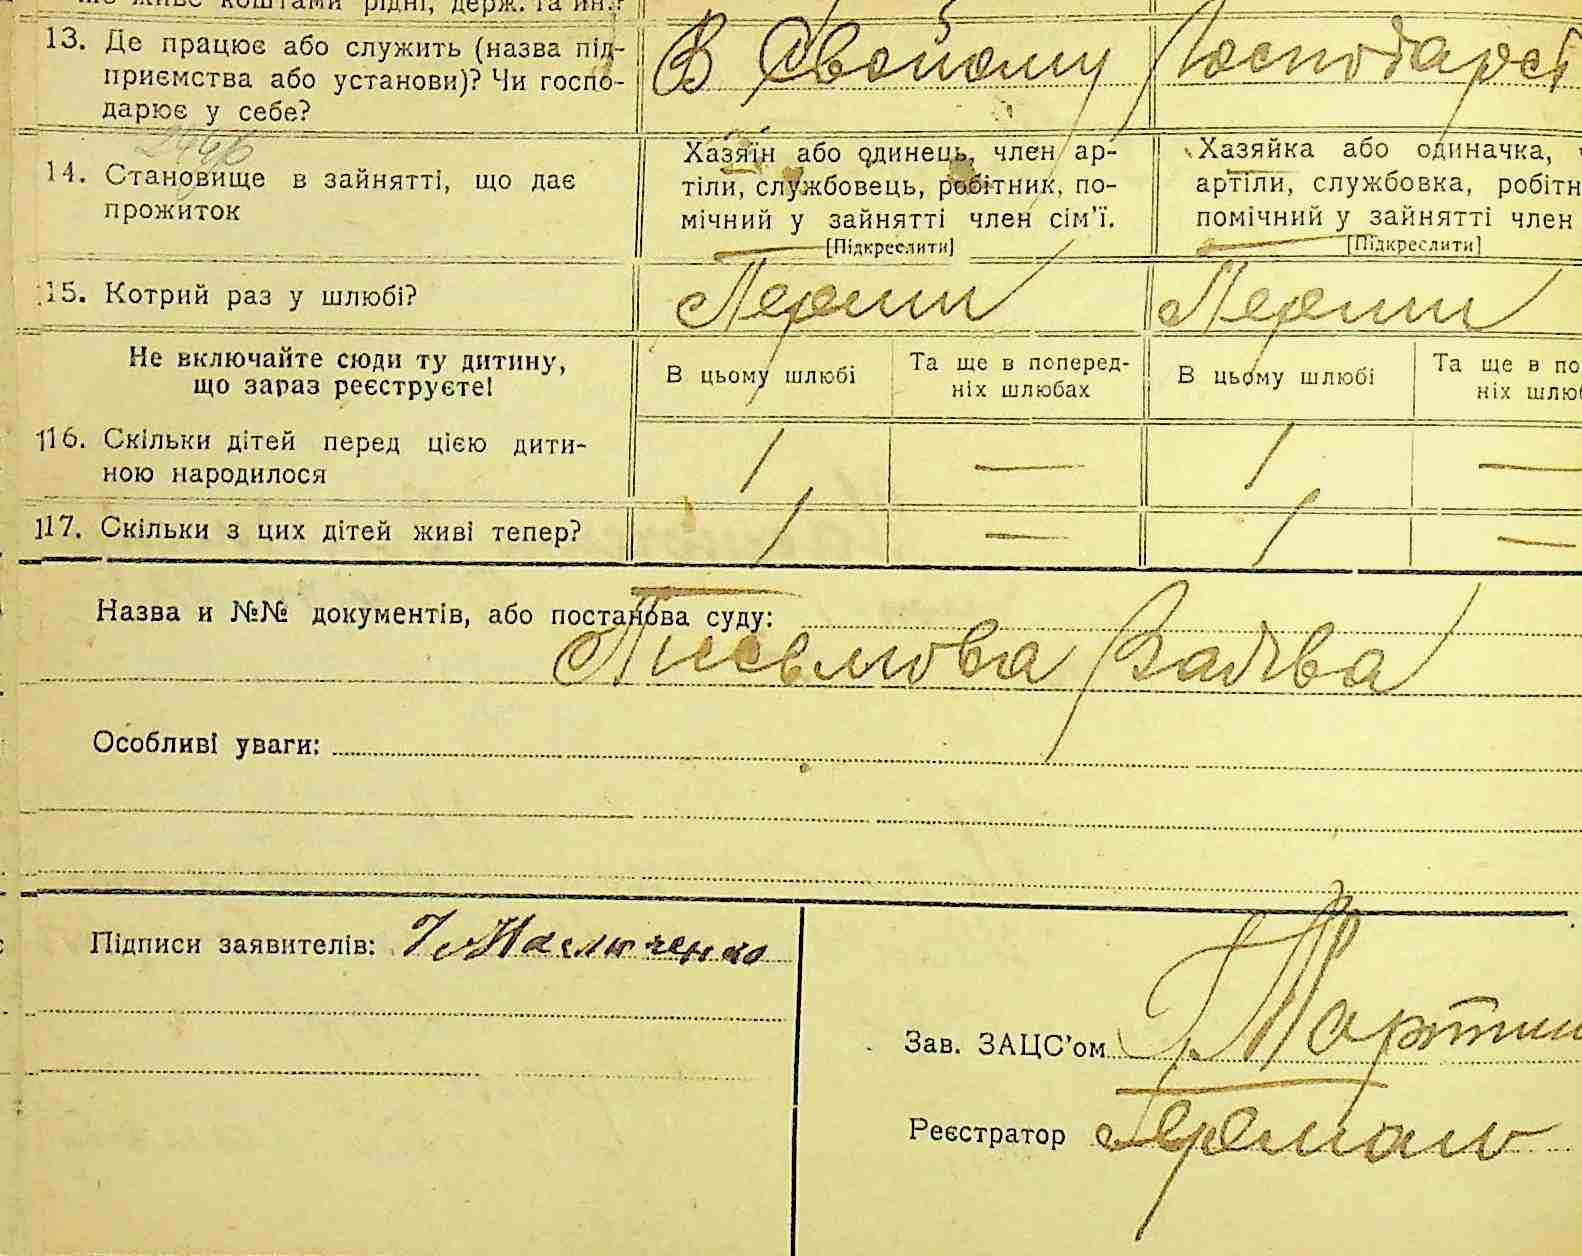 ще живе коштами рідні, держ. та ин.?
13. Де працює або служить (назва підприємства або установи)? Чи господарює у себе?
В Свойому Господарсті
2446
14. Становище в зайнятті, що дає прожиток
Хазяїн або одинець, член артіли, службовець, робітник, помічний у зайнятті член сім'ї.
[Підкреслити]
Хазяйка або одиначка, ч
артіли, службовка, робітн
помічний у зайнятті член
[Підкреслити]
15. Котрий раз у шлюбі?
Перши Перши
Не включайте сюди ту дитину, що зараз реєструєте!
В цьому шлюбі
Та ще в попередніх шлюбах
В цьому шлюбі
Та ще в по
ніх шлюб
16. Скільки дітей перед цією дитиною народилося
1 — 1 —
17. Скільки з цих дітей живі тепер?
1 — 1 —
Назва и №№ документів, або постанова суду:
Письмова Заява
Особливі уваги:
Підписи заявителів:
Зав. ЗАЦС'ом Мартин
Реєстратор Герман